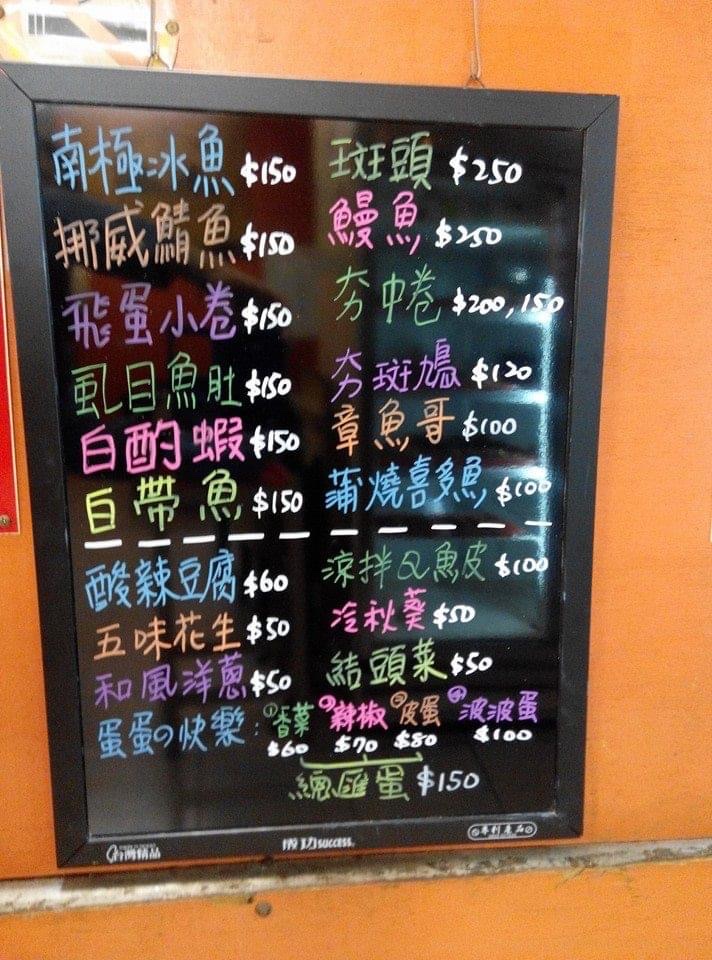 南極冰魚 $150
挪威鯖魚 $150
飛蛋小卷 $150
虱目魚肚 $150
白酌蝦 $150
白帶魚 $150
斑頭 $250
鰻魚 $250
夯中卷 $200,150
夯斑鳩 $120
章魚哥 $100
蒲燒喜多魚 $100
酸辣豆腐 $60
五味花生 $50
和風洋蔥 $50
涼拌Q魚皮 $100
冷秋葵 $50
結頭菜 $50
蛋蛋の快樂: ①香菜 $60 ②辣椒 $70 ③皮蛋 $80 ④波波蛋 $100
總匯蛋 $150
台灣精品
成功SUCCESS.
專利產品